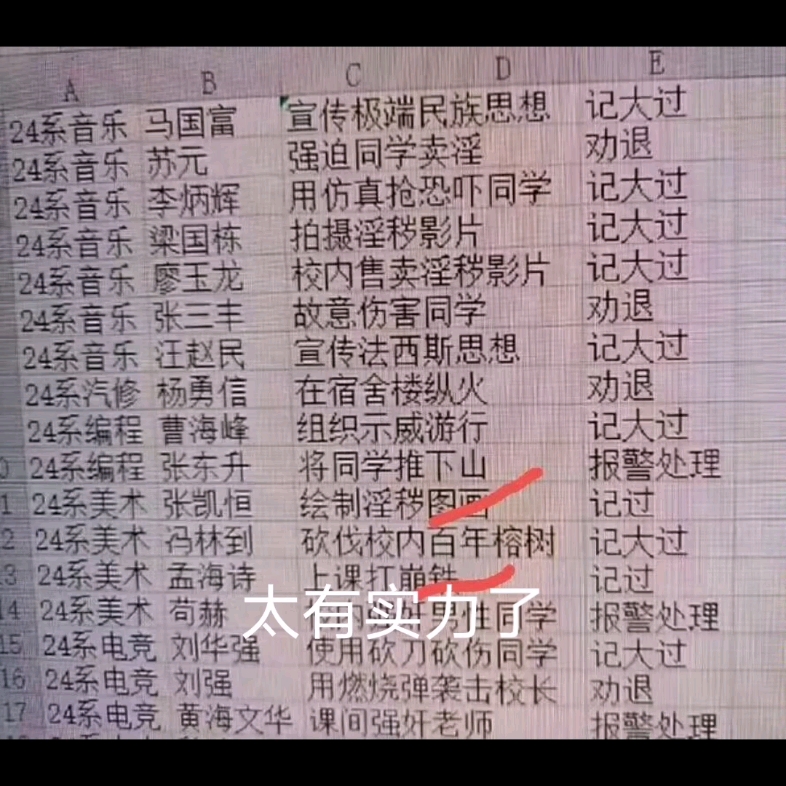 A B C D E
24系音乐 马国富 宣传极端民族思想 记大过
24系音乐 苏元 强迫同学卖淫 劝退
24系音乐 李炳辉 用仿真抢恐吓同学 记大过
24系音乐 梁国栋 拍摄淫秽影片 记大过
24系音乐 廖玉龙 校内售卖淫秽影片 记大过
24系音乐 张三丰 故意伤害同学 劝退
24系音乐 汪赵民 宣传法西斯思想 记大过
24系汽修 杨勇信 在宿舍楼纵火 劝退
24系编程 曹海峰 组织示威游行 记大过
0 24系编程 张东升 将同学推下山 报警处理
1 24系美术 张凯恒 绘制淫秽图画 记过
2 24系美术 冯林到 砍伐校内百年榕树 记大过
3 24系美术 孟海诗 上课打崩铁 记过
太有实力了
14 24系美术 苟赫 男性同学 报警处理
15 24系电竞 刘华强 使用砍刀砍伤同学 记大过
16 24系电竞 刘强 用燃烧弹袭击校长 劝退
17 24系电竞 黄海文华 课间强奸老师 报警处理